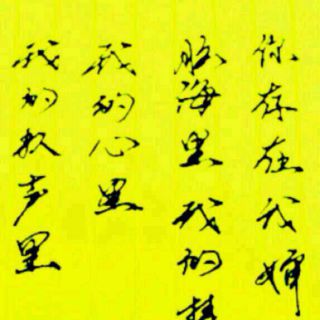 你存在我婶
脑海里我的梦
我的心里
我的歌声里